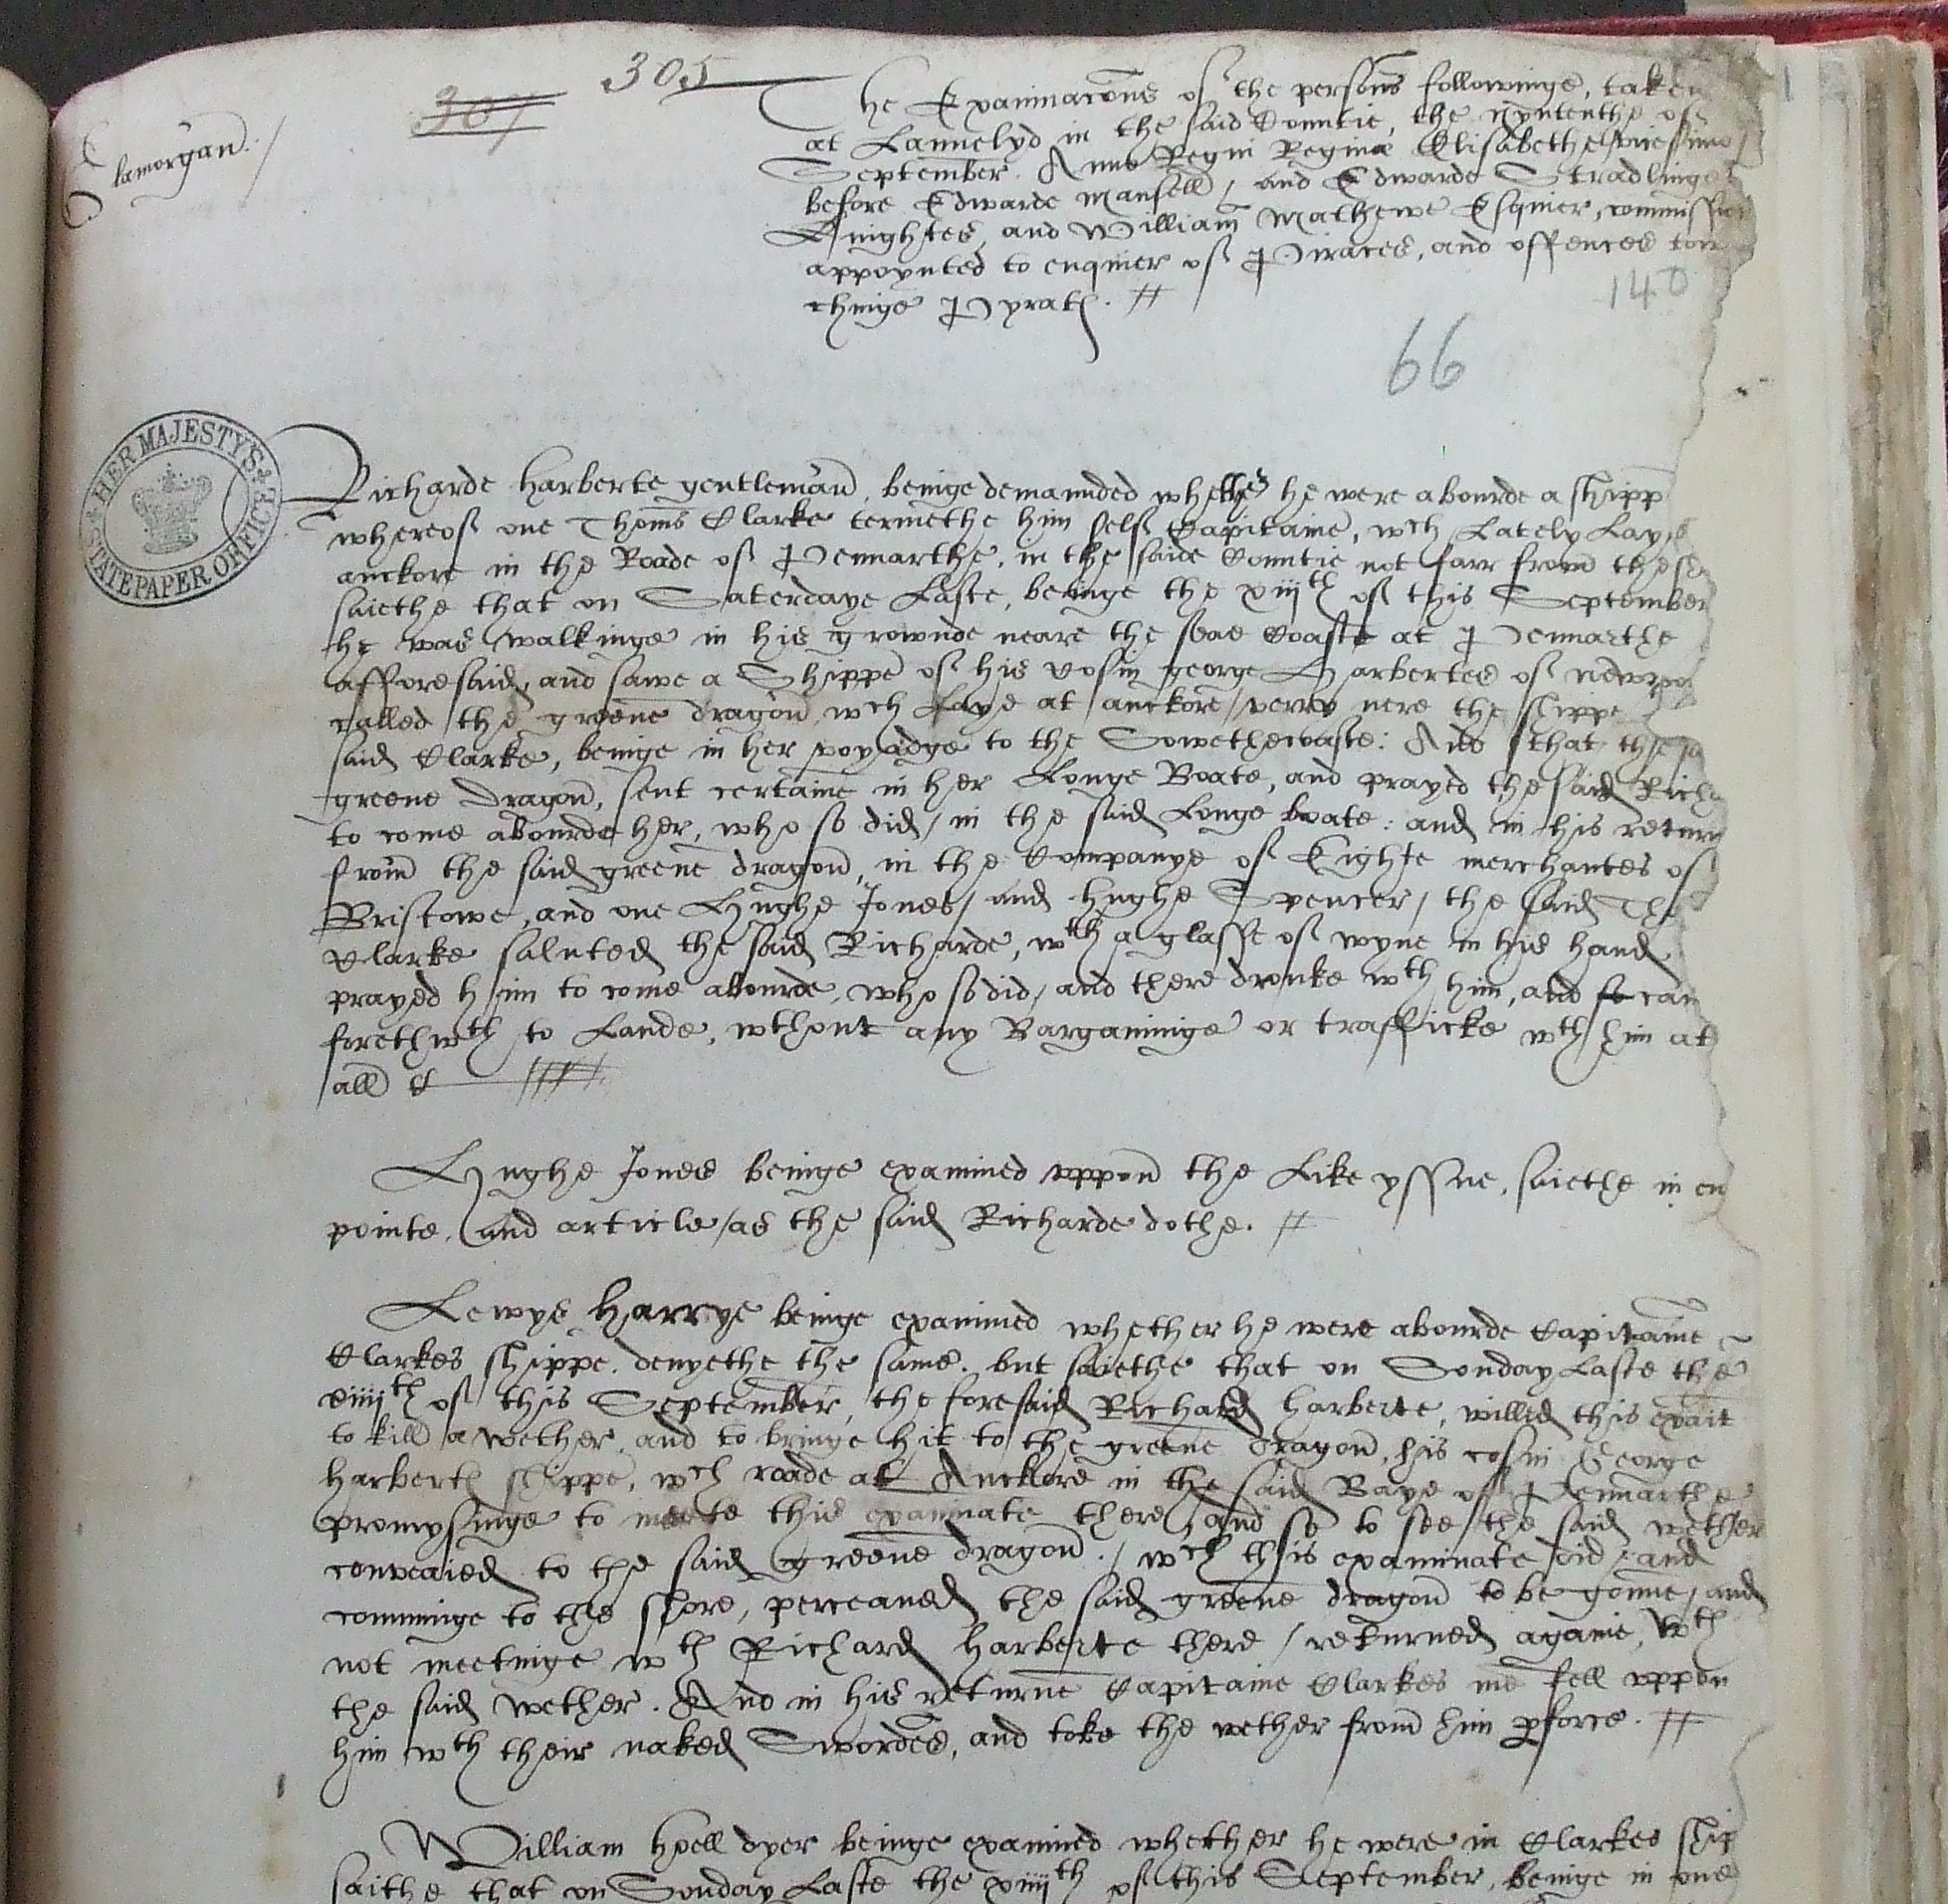 305
307
Glamorgan./
The Examinac̄ons of the persons followinge, taken
at Lannelyd in the said Countie, the nyntenthe of
September. Anno Regni Reginæ Elisabethe vicessimo
before Edwarde Mansell, and Edwarde Stradlinge
Knightes, and William Mathewe Esquier, commissio
appoynted to enquier of Piraces, and offences tow
chinge Pyrates. //
140
66
HER MAJESTY'S STATE PAPER OFFICE
Richarde Harberte gentleman, beinge demaunded whether he were abourde a shipp
whereof one Thomas Clarke termethe him self Capitaine, wch Lately Laye
anckore in the Roade of Pennarthe, in the saide Countie not farr from these
saiethe that on Saterdaye Laste, beinge the xiijth of this September
he was walkinge in his grownde neare the seae Coaste at Pennarthe
afforesaid, and sawe a Shippe of his cosin george Harbertes of newpo
called the greene dragon, wch Laye at anckore verry nere the shippe
said Clarke, beinge in her voyadge to the Sowthewaste: And that the sa
greene Dragon, sent certaine in her Longe Boate, and prayed the said Rich
to come abourde her, who so did, in the said Longe boate: and in his return
from the said greene dragon, in the Companye of Eighte merchantes of
Bristowe, and one Hughe Jones, and Hughe Spencer, the said Tho
Clarke saluted the said Richarde, wth a glasse of wyne in his hand
prayed him to come abourde, who so did, and there dronke wth him, and so cam
forethwth to Lande, wthout any Bargaininge or trafficke wth him at
all &
Hughe Jones beinge examined uppon the Like yssue, saiethe in eu
pointe, and article, as the said Richarde dothe. //
Lewys Harrye beinge examined whether he were abourde Capitaine
Clarkes shippe, denyethe the same. but saiethe that on Sonday Laste the
xiiijth of this September, the foresaid Richard Harberte, willed this exait
to kill a wether, and to bringe hit to the greene dragon, his cosin George
Harbertes shippe, wch roade at Anckore in the said Baye of Pennarthe
promysinge to meete this examinate there, and so to see the said wether
conveaied to the said greene dragon./ wch this examinate did, and
comminge to the shore, perceaued the said greene dragon to be gonne, and
not meetinge wth Richard Harberte there, returned againe, wth
the said wether. And in his returne Capitaine Clarkes mē fell uppon
him wth their naked Swordes, and toke the wether from him ꝑforce. //
William Hoell dyer beinge examined whether he were in Clarkes ship
saithe that on Sonday Laste the xiiijth of this September, beinge in one